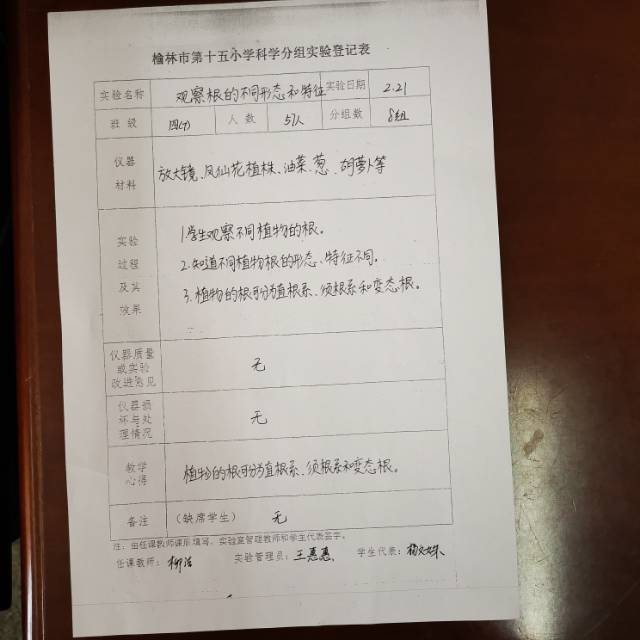 榆林市第十五小学科学分组实验登记表
实验名称 观察根的不同形态和特征 实验日期 2.21
班级 四(7) 人数 51人 分组数 8组
仪器
材料
放大镜、凤仙花植株、油菜、葱、胡萝卜等
实验
过程
及其
效果
1.学生观察不同植物的根。
2.知道不同植物根的形态、特征不同。
3.植物的根可分为直根系、须根系和变态根。
仪器质量
或实验
改进意见
无
仪器损
坏与处
理情况
无
教学
心得
植物的根可分为直根系、须根系和变态根。
备注 (缺席学生) 无
注:由任课教师课前填写,实验室管理教师和学生代表签字。
任课教师: 柳洁 实验管理员: 王惠惠 学生代表: